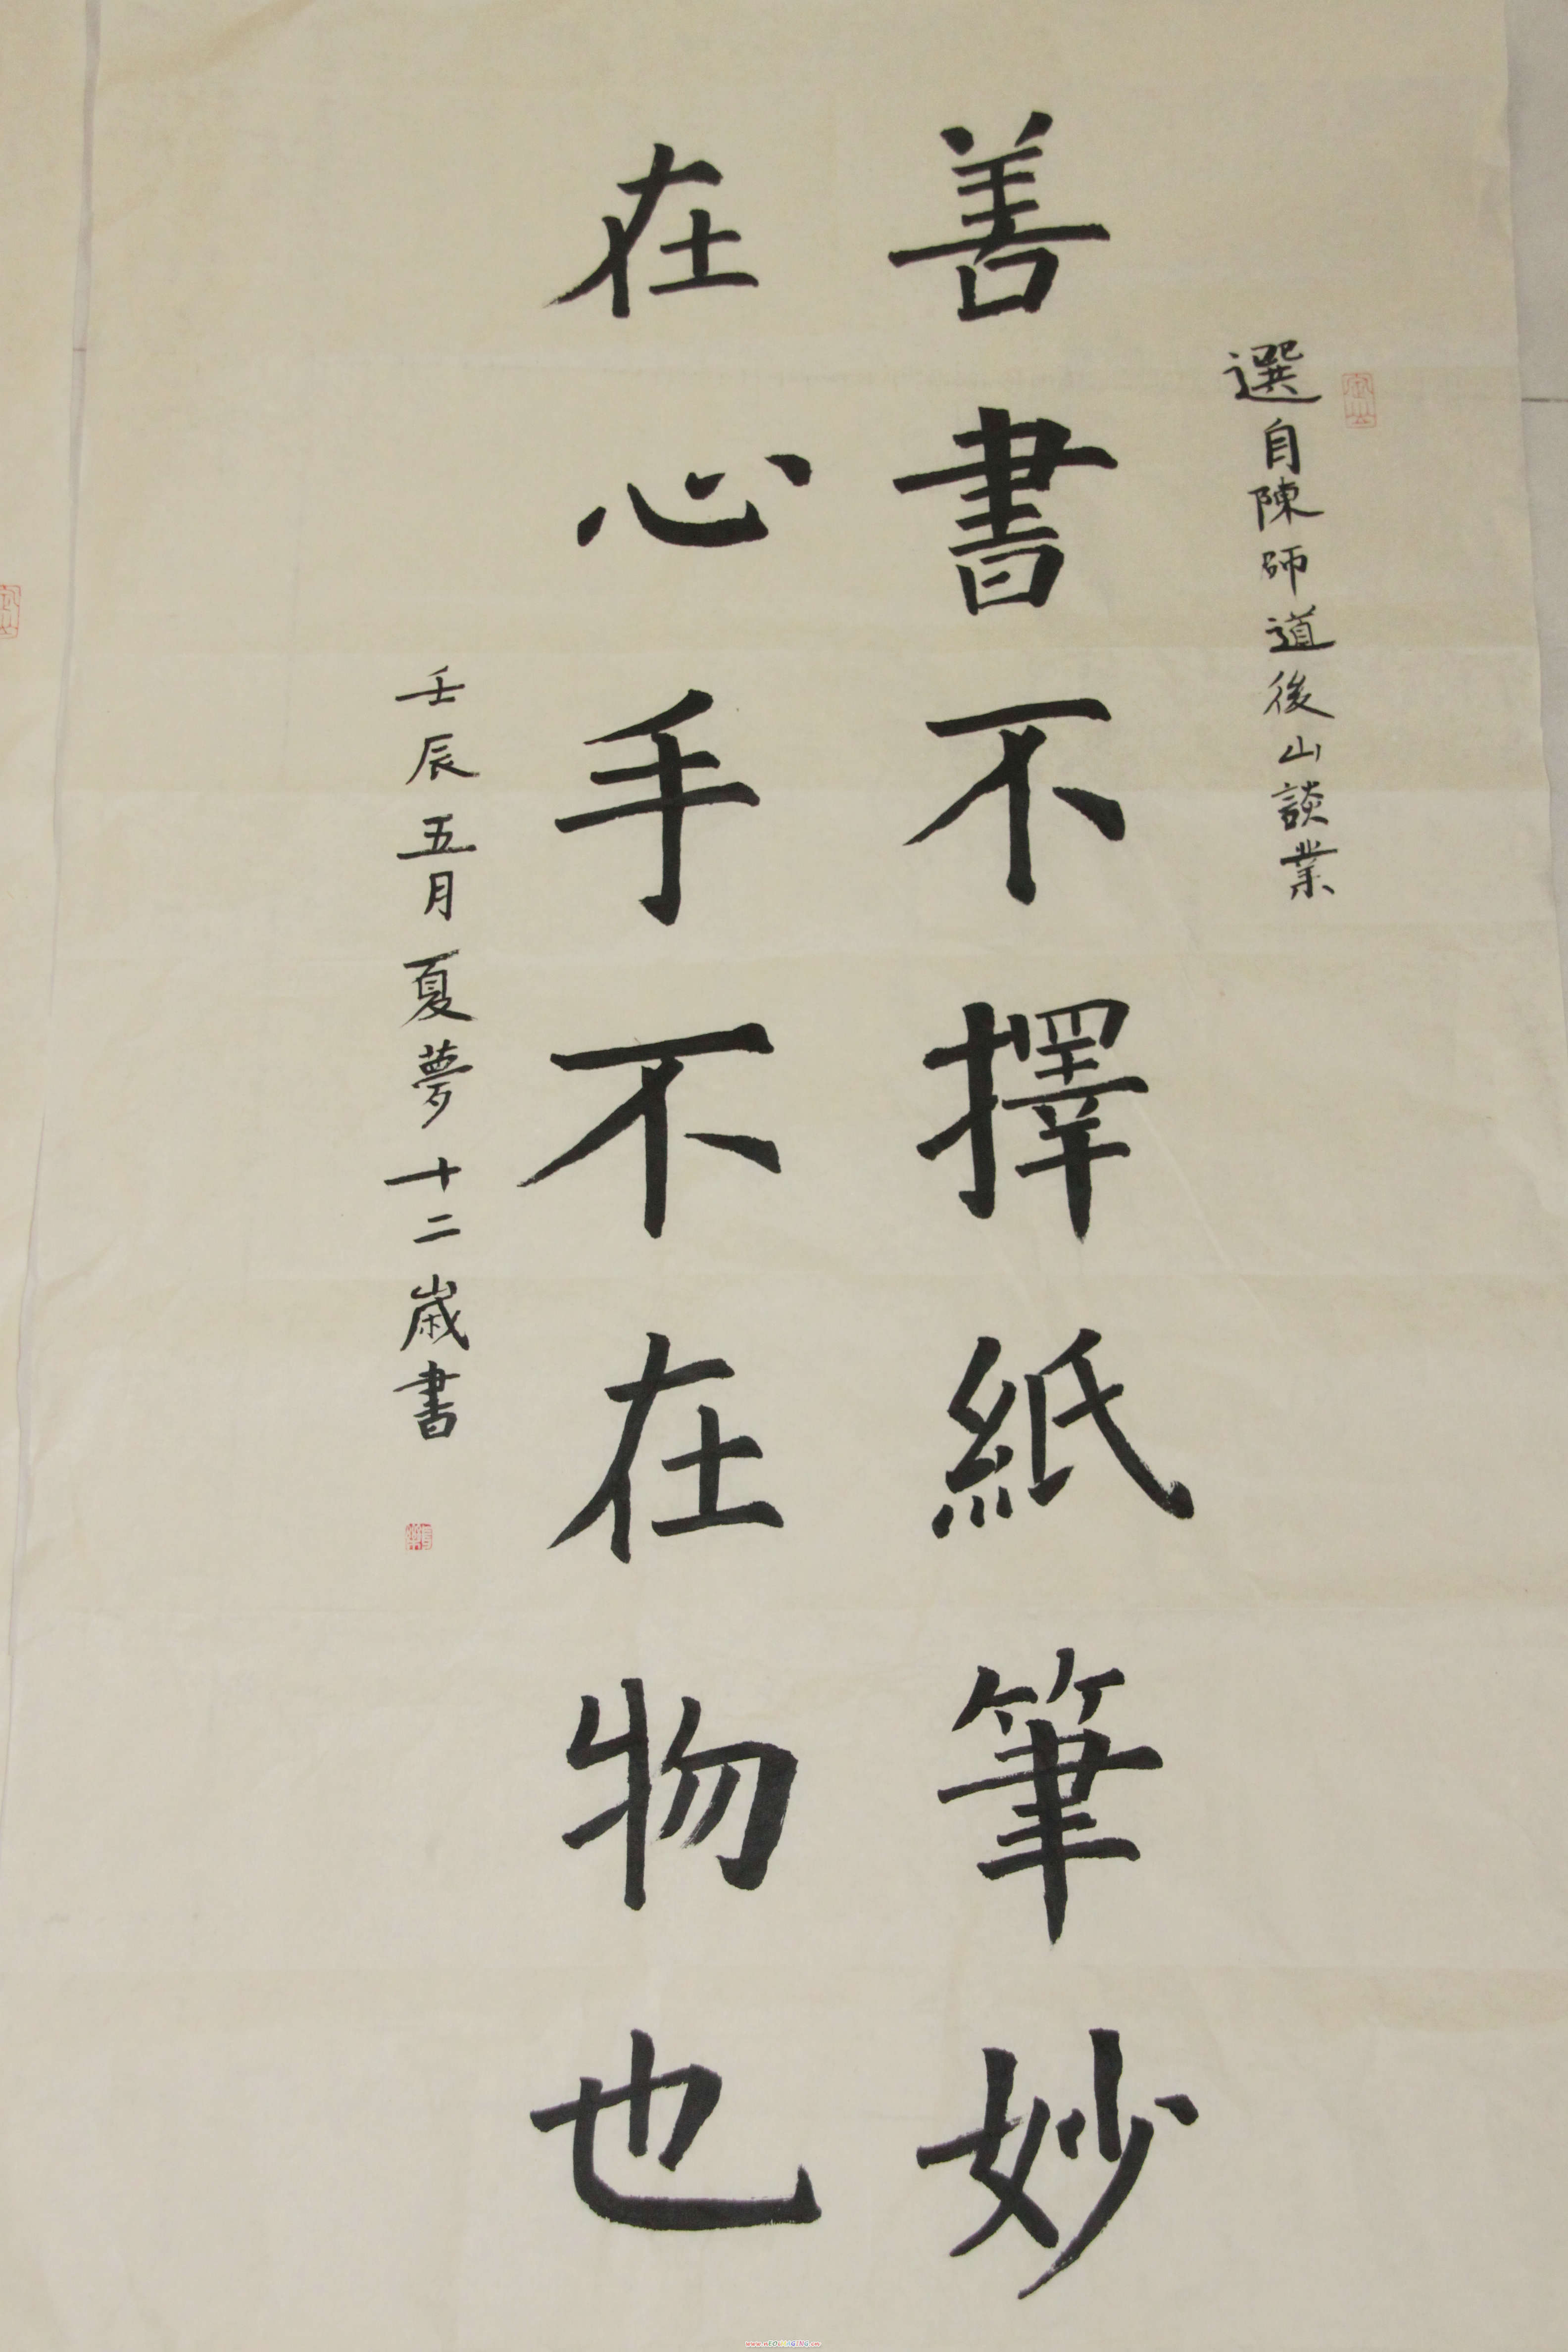 選自陳師道後山談業
善書不擇紙筆妙
在心手不在物也
壬辰五月夏夢十二歲書